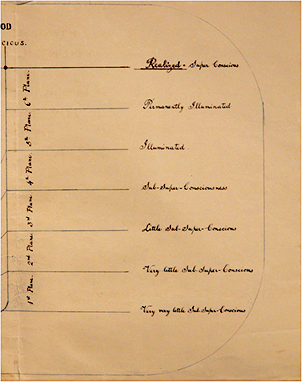 OD
CIOUS.
Realized - Super Conscious
6th Plane.
Permanently Illuminated
5th Plane.
Illuminated
4th Plane.
Sub-Super-Consciousness
3rd Plane.
Little Sub-Super-Conscious
2nd Plane.
Very little Sub-Super-Conscious
1st Plane.
Very very little Sub-Super-Conscious